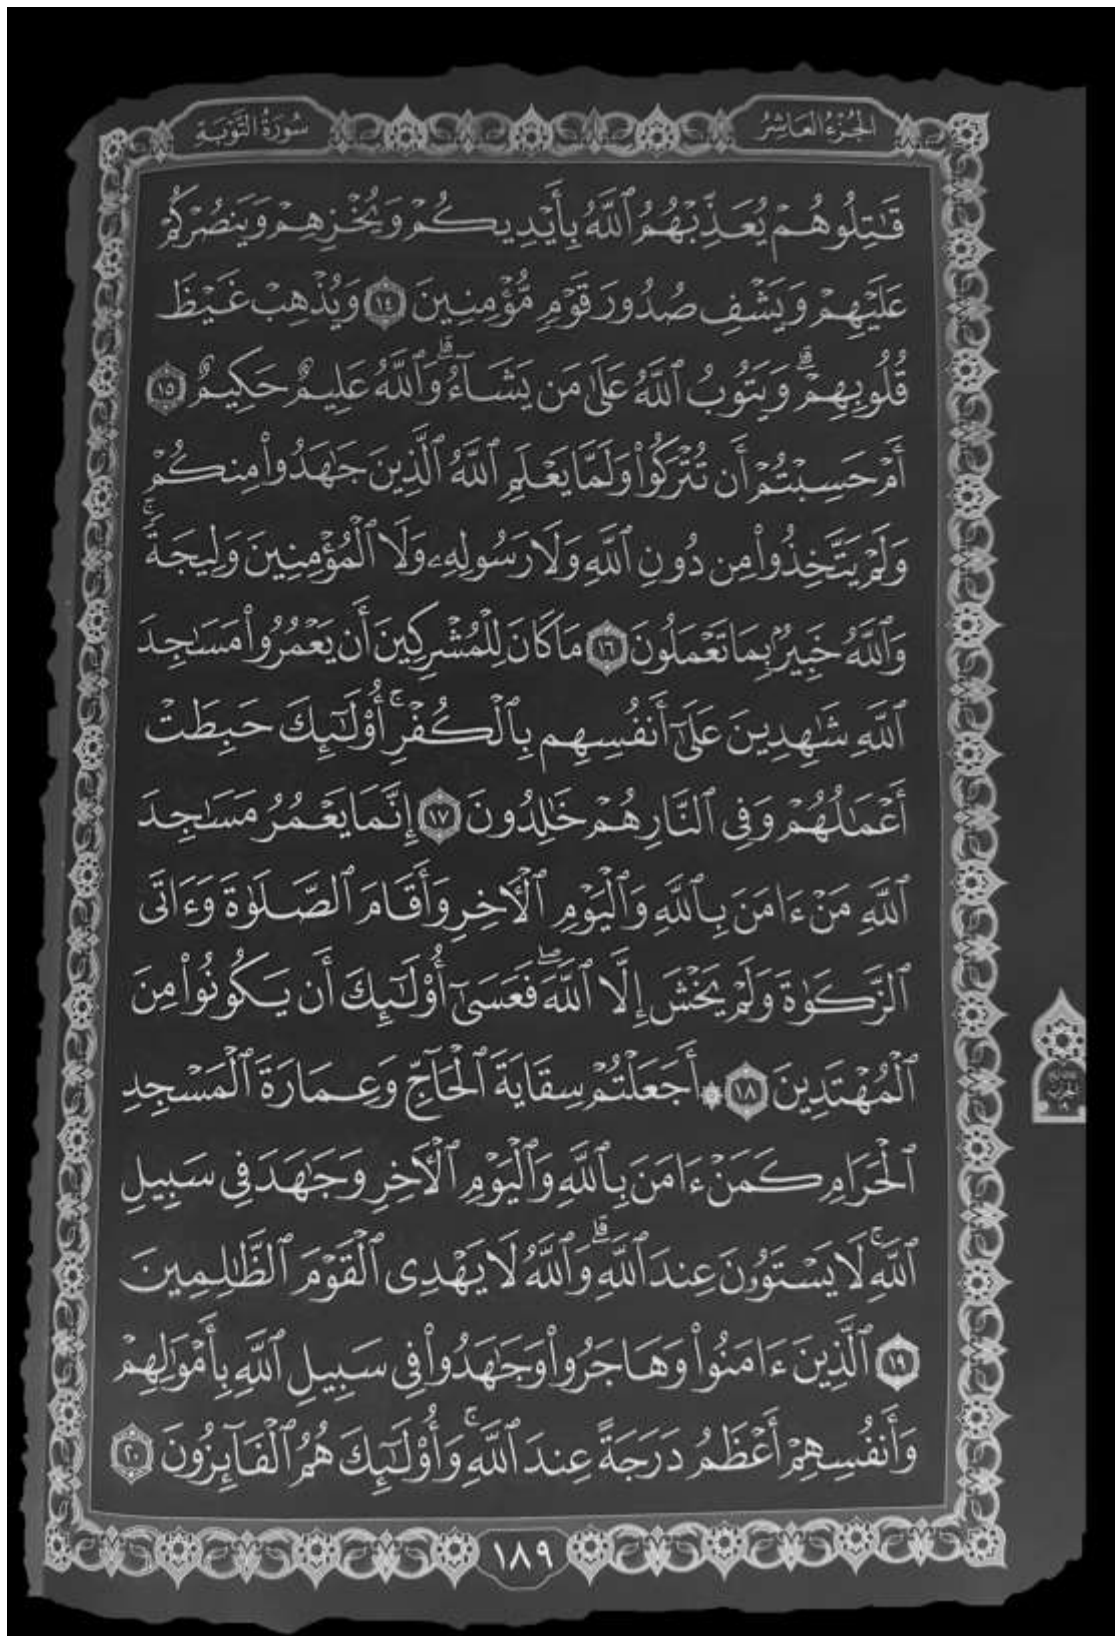 الجزء العاشر
سورة التوبة
قَٰتِلُوهُمْ يُعَذِّبْهُمُ ٱللَّهُ بِأَيْدِيكُمْ وَيُخْزِهِمْ وَيَنصُرْكُمْ
عَلَيْهِمْ وَيَشْفِ صُدُورَ قَوْمٍ مُّؤْمِنِينَ ١٤ وَيُذْهِبْ غَيْظَ
قُلُوبِهِمْۗ وَيَتُوبُ ٱللَّهُ عَلَىٰ مَن يَشَآءُۗ وَٱللَّهُ عَلِيمٌ حَكِيمٌ ١٥
أَمْ حَسِبْتُمْ أَن تُتْرَكُوا۟ وَلَمَّا يَعْلَمِ ٱللَّهُ ٱلَّذِينَ جَٰهَدُوا۟ مِنكُمْ
وَلَمْ يَتَّخِذُوا۟ مِن دُونِ ٱللَّهِ وَلَا رَسُولِهِۦ وَلَا ٱلْمُؤْمِنِينَ وَلِيجَةًۚ
وَٱللَّهُ خَبِيرٌۢ بِمَا تَعْمَلُونَ ١٦ مَا كَانَ لِلْمُشْرِكِينَ أَن يَعْمُرُوا۟ مَسَٰجِدَ
ٱللَّهِ شَٰهِدِينَ عَلَىٰٓ أَنفُسِهِم بِٱلْكُفْرِۚ أُو۟لَٰٓئِكَ حَبِطَتْ
أَعْمَٰلُهُمْ وَفِى ٱلنَّارِ هُمْ خَٰلِدُونَ ١٧ إِنَّمَا يَعْمُرُ مَسَٰجِدَ
ٱللَّهِ مَنْ ءَامَنَ بِٱللَّهِ وَٱلْيَوْمِ ٱلْءَاخِرِ وَأَقَامَ ٱلصَّلَوٰةَ وَءَاتَى
ٱلزَّكَوٰةَ وَلَمْ يَخْشَ إِلَّا ٱللَّهَۖ فَعَسَىٰٓ أُو۟لَٰٓئِكَ أَن يَكُونُوا۟ مِنَ
ٱلْمُهْتَدِينَ ١٨ ۞ أَجَعَلْتُمْ سِقَايَةَ ٱلْحَآجِّ وَعِمَارَةَ ٱلْمَسْجِدِ
ٱلْحَرَامِ كَمَنْ ءَامَنَ بِٱللَّهِ وَٱلْيَوْمِ ٱلْءَاخِرِ وَجَٰهَدَ فِى سَبِيلِ
ٱللَّهِۚ لَا يَسْتَوُۥنَ عِندَ ٱللَّهِۗ وَٱللَّهُ لَا يَهْدِى ٱلْقَوْمَ ٱلظَّٰلِمِينَ
١٩ ٱلَّذِينَ ءَامَنُوا۟ وَهَاجَرُوا۟ وَجَٰهَدُوا۟ فِى سَبِيلِ ٱللَّهِ بِأَمْوَٰلِهِمْ
وَأَنفُسِهِمْ أَعْظَمُ دَرَجَةً عِندَ ٱللَّهِۚ وَأُو۟لَٰٓئِكَ هُمُ ٱلْفَآئِزُونَ ٢٠
١٨٩